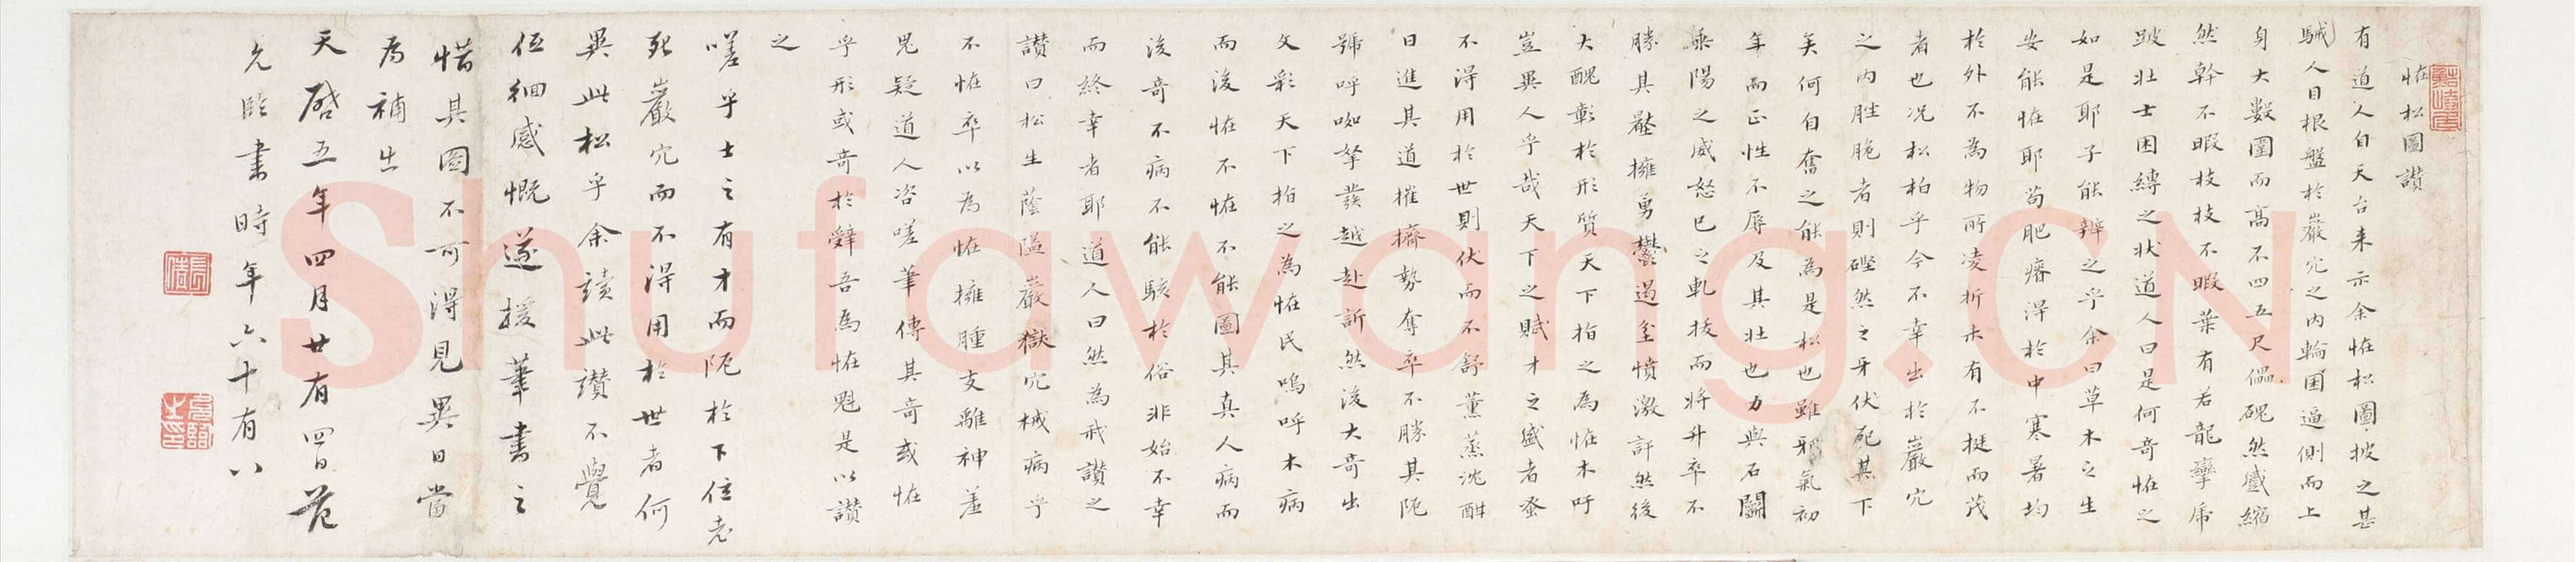 怪松圖讃
有道人自天台来示余怪松圖披之甚
駴人目根盤於巖穴之内輪囷逼側而上
身大數圍而高不四五尺儡磈然蹙縮
然幹不暇枝枝不暇葉有若龍攣虎
跛壯士囚縛之狀道人曰是何奇怪之
如是耶子能辨之乎余曰草木之生
安能怪耶苟肥瘠得於中寒暑均
於外不為物所凌折未有不挺而茂
者也况松柏乎今不幸出於巖穴
之内胜脆者則磴然之牙伏死其下
矣何自奮之能為是松也雖邪氣初
年而正性不辱及其壯也力與石鬭
乘陽之威怒已之軋拔而將升卒不
勝其壓擁勇鬱遏坌憤激訐然後
大醜彰於形質天下指之為怪木吁
豈異人乎哉天下之賦才之盛者蚤
不得用於世則伏而不舒薰蒸沈酣
日進其道摧擠勢奪卒不勝其阨
號呼呶拏發越赴訴然後大奇出
文彩天下指之為怪民嗚呼木病而
而後怪不怪不能圖其真人病而
後奇不病不能駭於俗非始不幸
而終幸者耶道人曰然為我讃之
讃曰松生蔭隘巖嶽穴械病乎
不怪卒以為怪擁腫支離神羞
鬼疑道人咨嗟筆傳其奇或怪
乎形或奇於辭吾為怪魁是以讃
之
嗟乎士之有才而阨於下位老
死巖穴而不得用於世者何
異此松乎余讀此讃不覺
低徊感慨遂援筆書之
惜其圖不可得見異日當
為補出
天啓五年四月廿有四日范
允臨書時年六十有八
Shufawang.CN